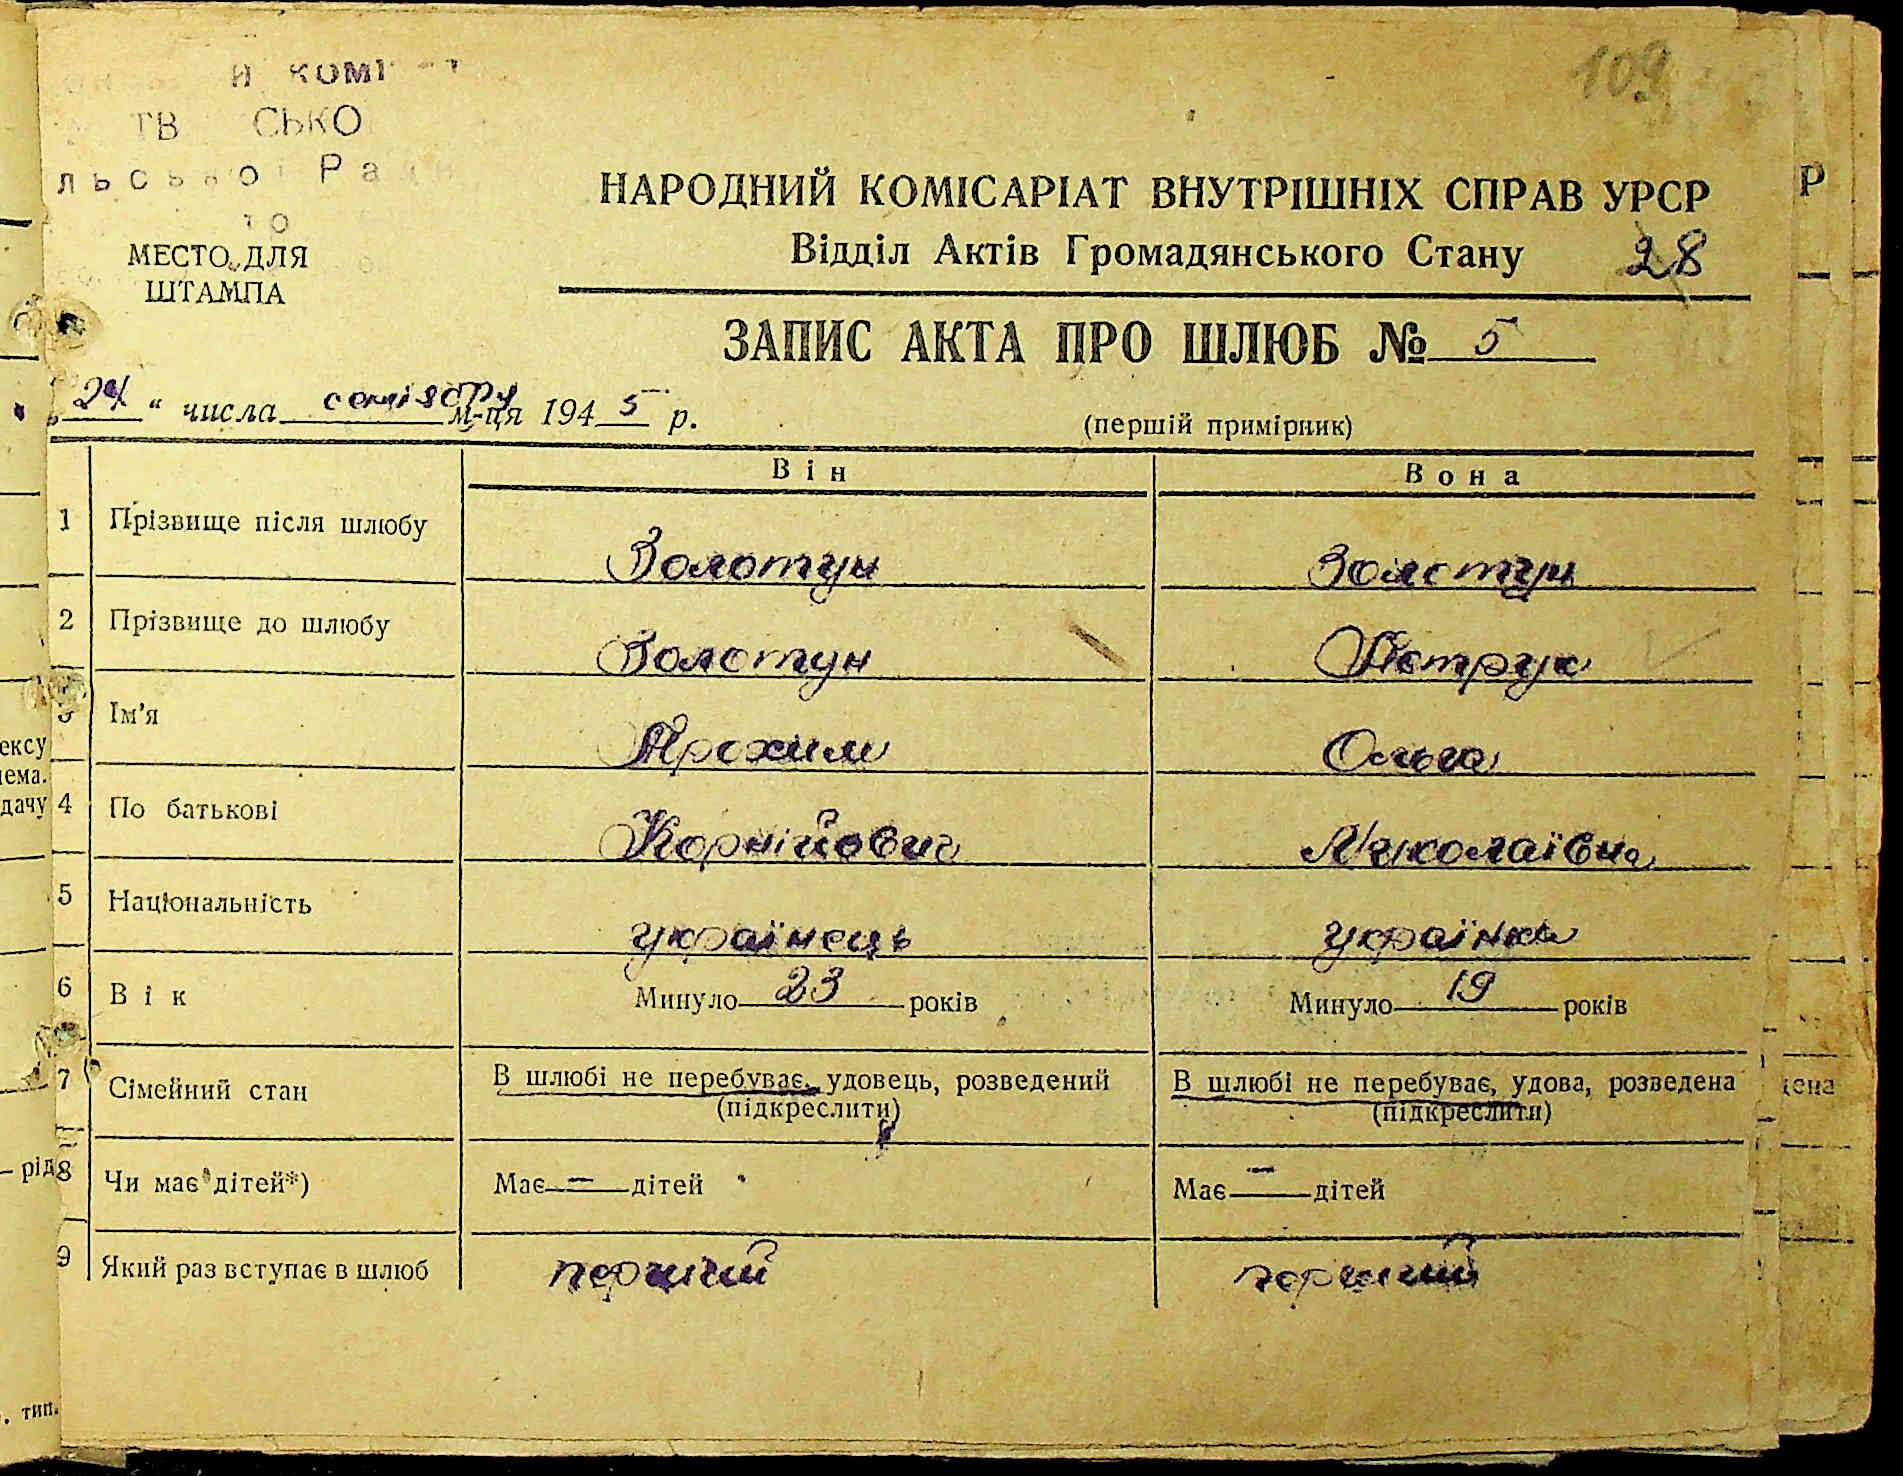 109
НАРОДНИЙ КОМІСАРІАТ ВНУТРІШНІХ СПРАВ УРСР
Відділ Актів Громадянського Стану 28
МЕСТО ДЛЯ
ШТАМПА
ЗАПИС АКТА ПРО ШЛЮБ № 5
„24“ числа м-ця 1945 р.
(першій примірник)
Він Вона
1 Прізвище після шлюбу Золотун Золотун
2 Прізвище до шлюбу Золотун Петрук
3 Ім'я Прохим Ольга
4 По батькові Корнійович Миколаївна
5 Національність українець українка
6 Вік Минуло 23 років Минуло 19 років
7 Сімейний стан В шлюбі не перебуває, удовець, розведений В шлюбі не перебуває, удова, розведена
(підкреслити) (підкреслити)
8 Чи має дітей*) Має — дітей Має — дітей
9 Який раз вступає в шлюб перший перший